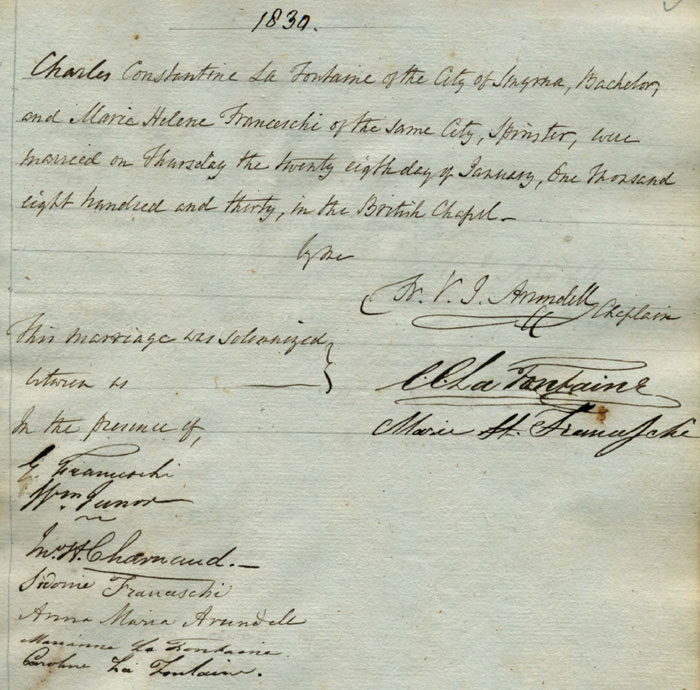 1830.
Charles Constantine La Fontaine of the City of Smyrna, Bachelor,
and Marie Helene Franceschi of the same City, Spinster, were
married on Thursday the twenty eighth day of January, One thousand
eight hundred and thirty, in the British Chapel—
by me
Fr. V. J. Arundell
Chaplain
This marriage was solemnized
between us
C. C. La Fontaine
Marie H. Franceschi
In the presence of,
G. Franceschi
Wm. Junor
Jno. H. Charnaud.
Sidonie Franceschi
Anna Maria Arundell
Marianne La Fontaine
Caroline La Fontaine.